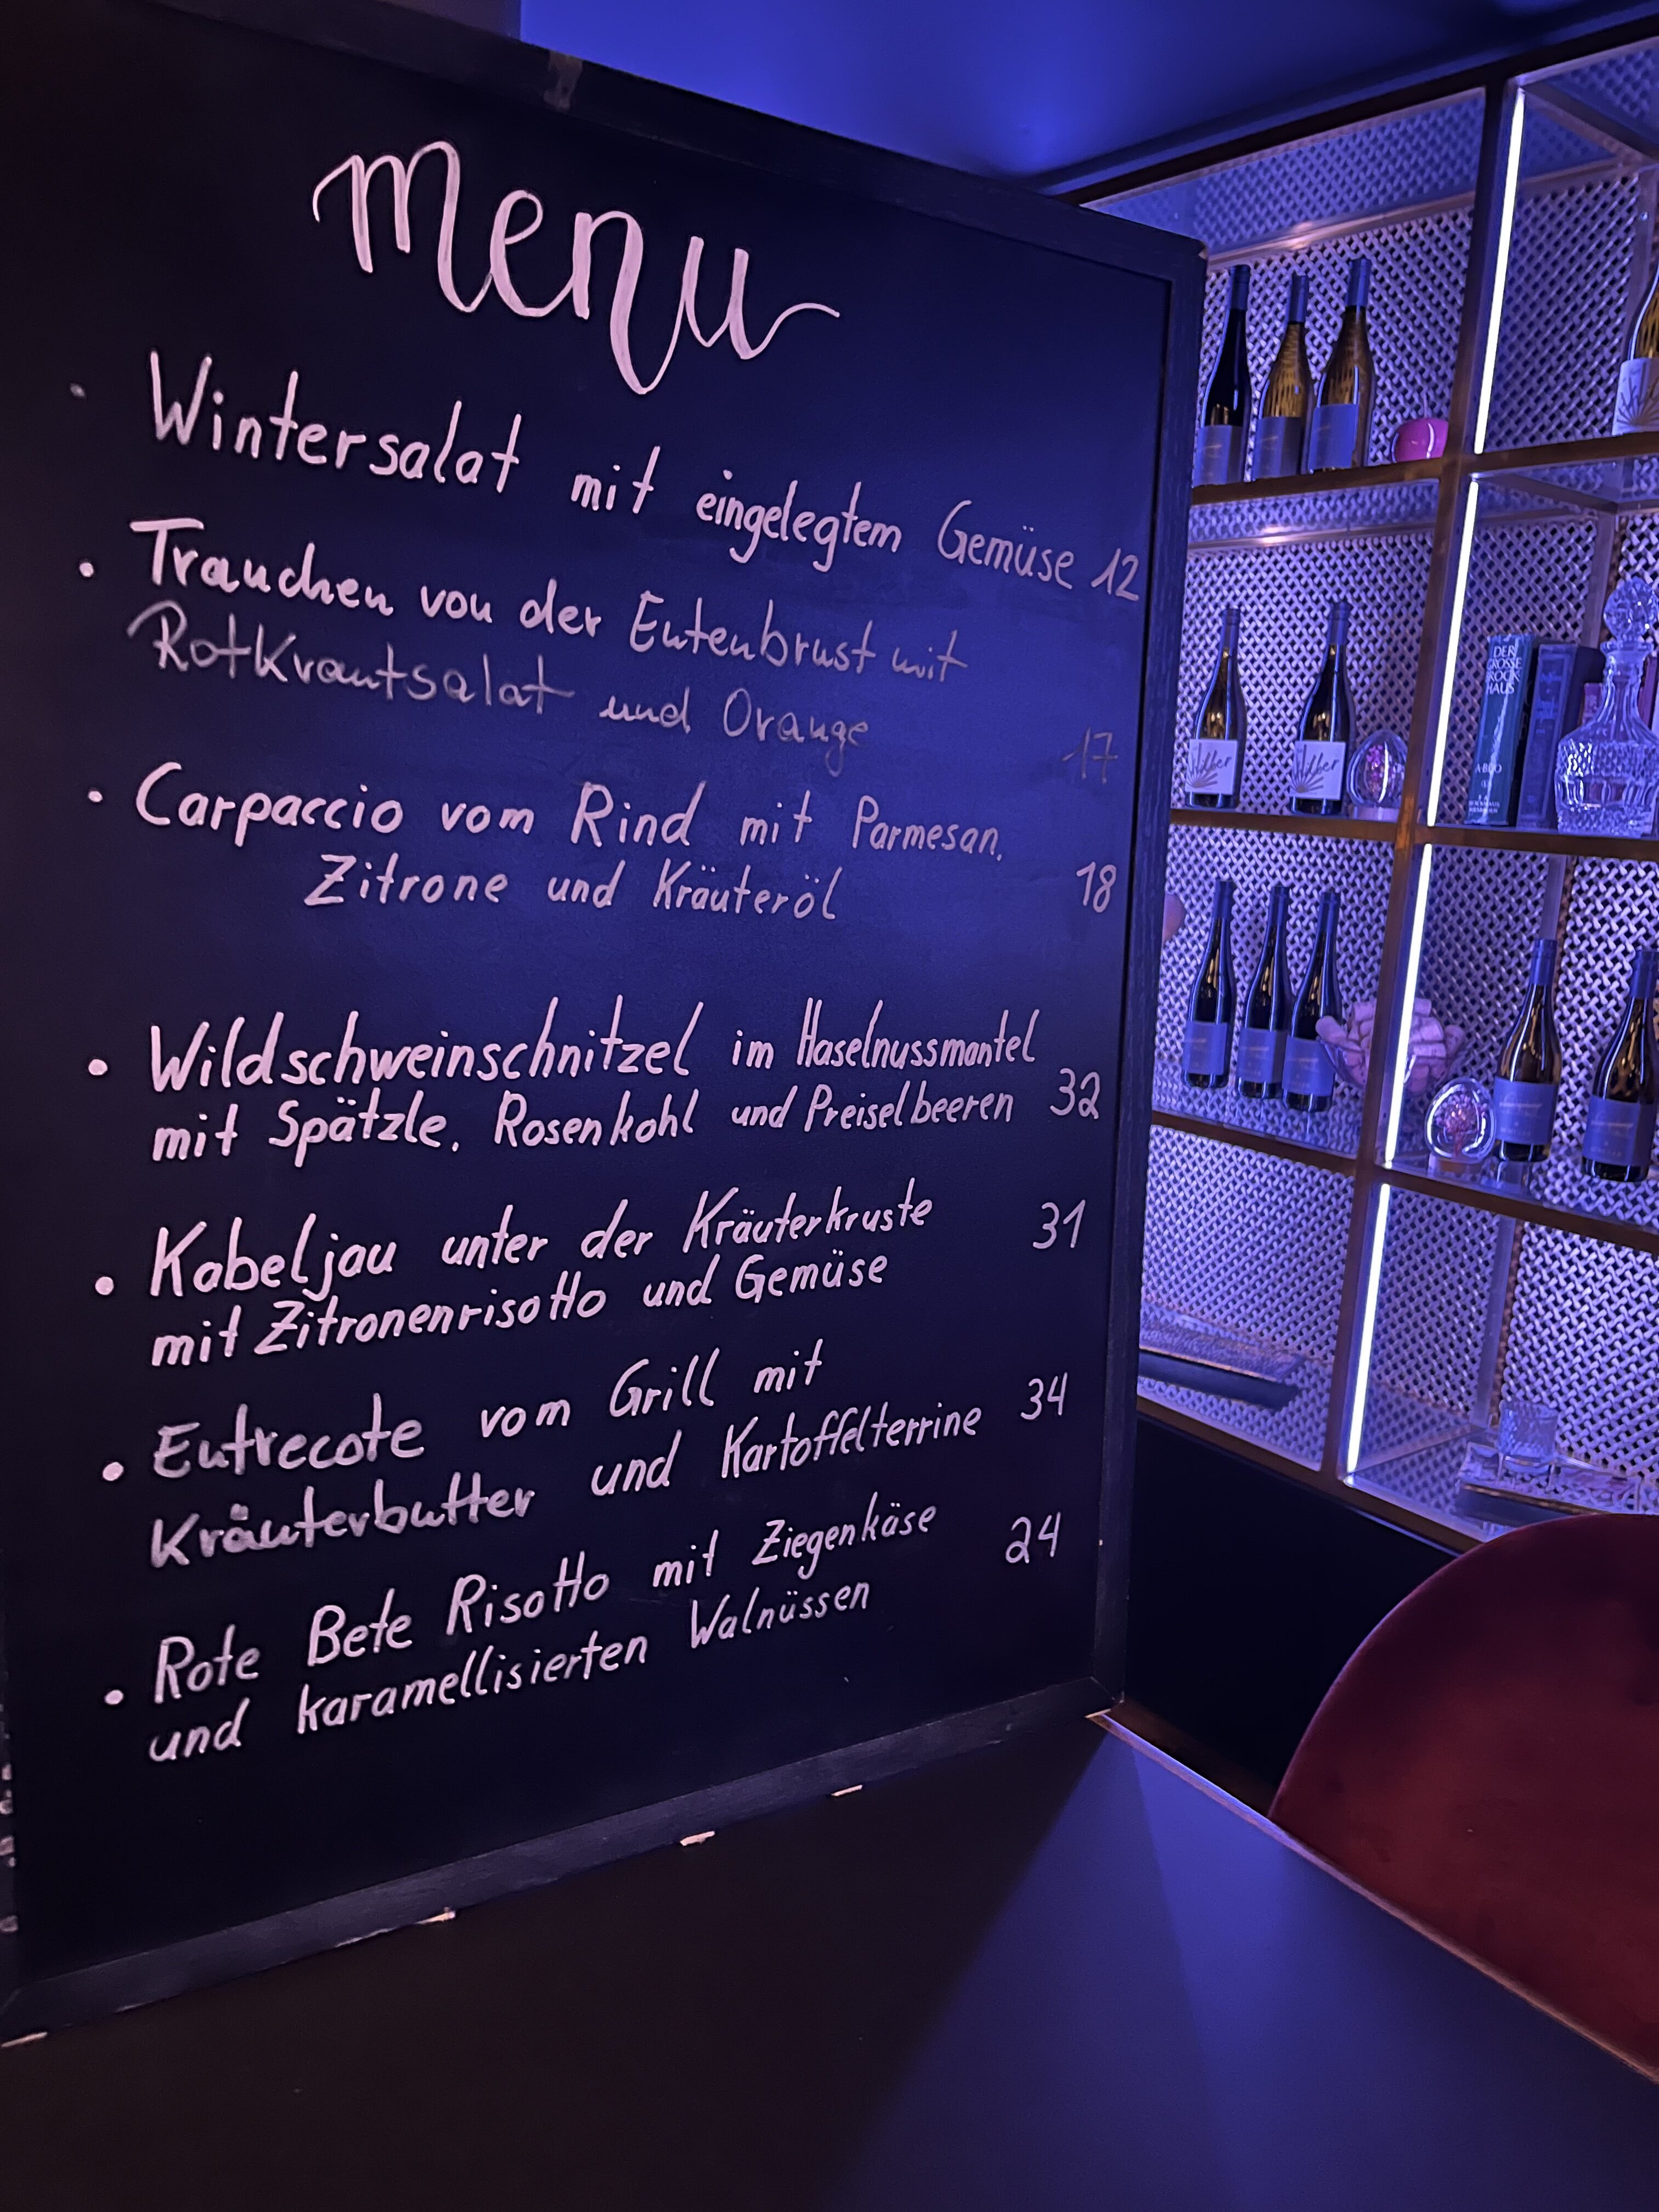 menu
Wintersalat mit eingelegtem Gemüse 12
Tranchen von der Entenbrust mit
Rotkrautsalat und Orange 17
Carpaccio vom Rind mit Parmesan,
Zitrone und Kräuteröl 18
Wildschweinschnitzel im Haselnussmantel
mit Spätzle, Rosenkohl und Preiselbeeren 32
Kabeljau unter der Kräuterkruste 31
mit Zitronenrisotto und Gemüse
Entrecote vom Grill mit
Kräuterbutter und Kartoffelterrine 34
Rote Bete Risotto mit Ziegenkäse 24
und karamellisierten Walnüssen
DER
GROSSE
BROCK
HAUS